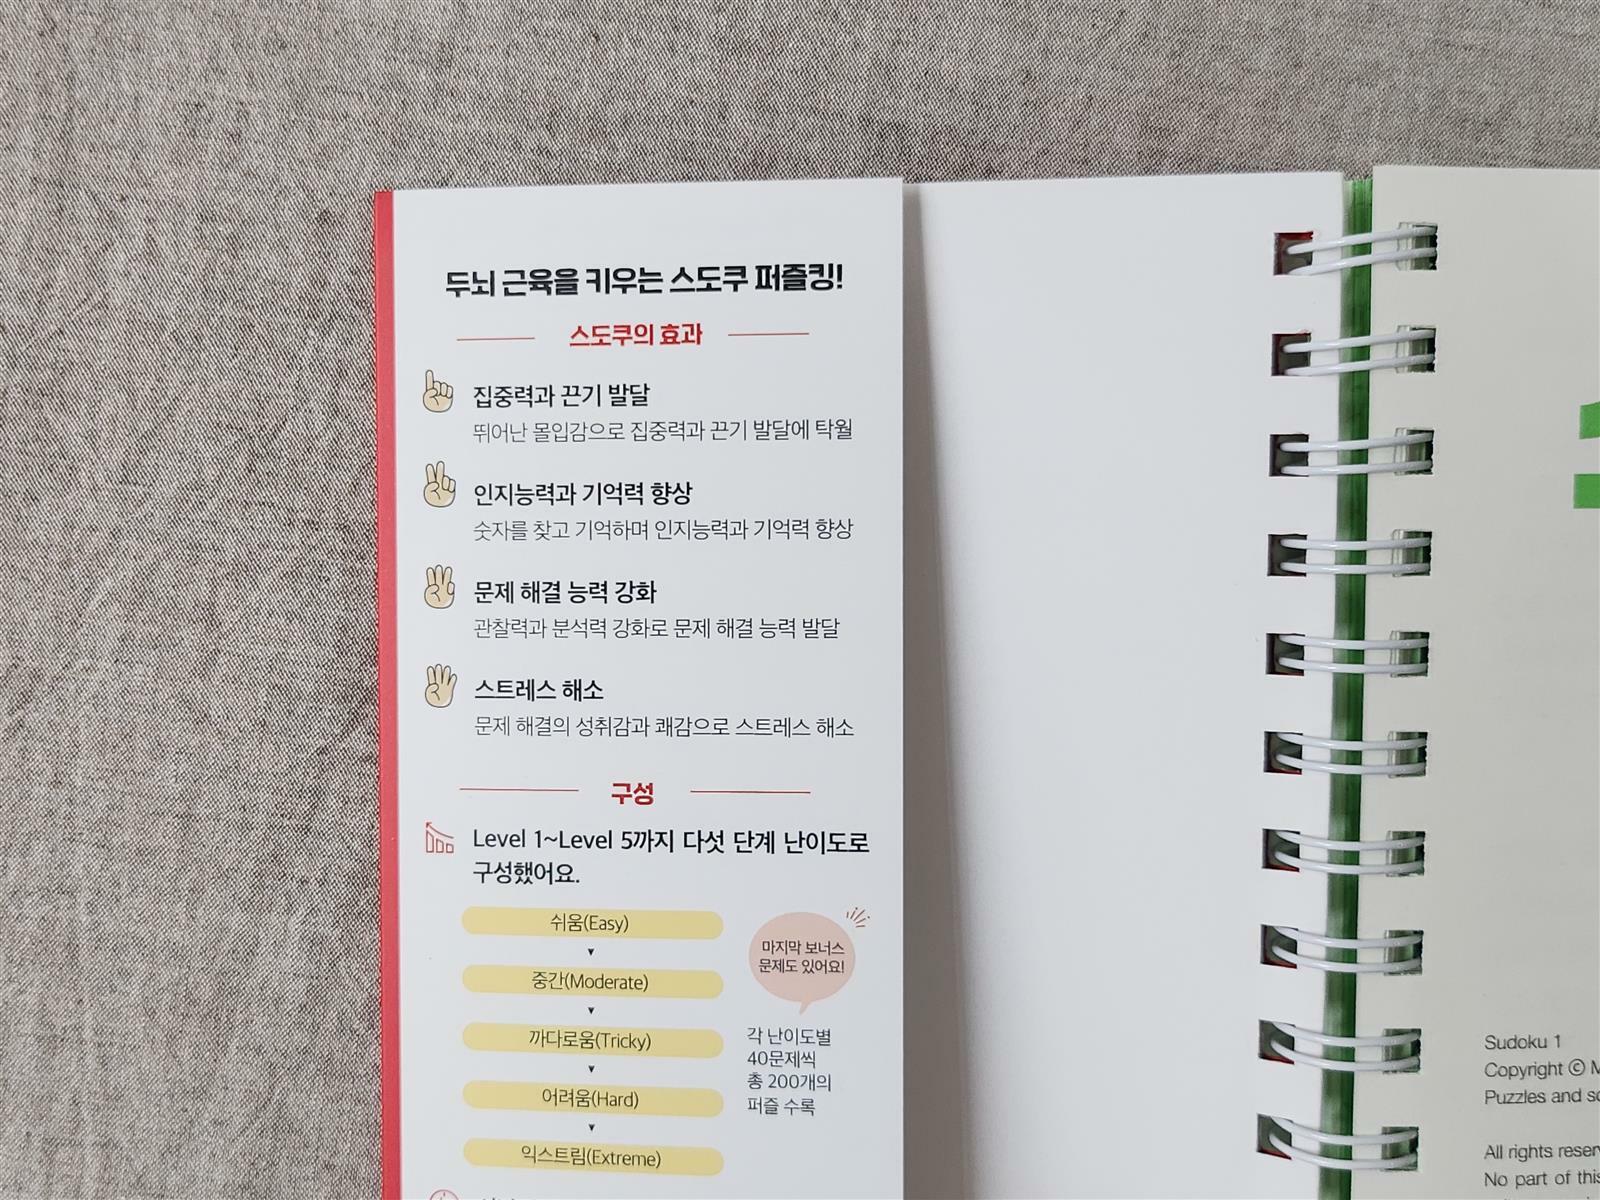 두뇌 근육을 키우는 스도쿠 퍼즐킹!
스도쿠의 효과
집중력과 끈기 발달
뛰어난 몰입감으로 집중력과 끈기 발달에 탁월
인지능력과 기억력 향상
숫자를 찾고 기억하며 인지능력과 기억력 향상
문제 해결 능력 강화
관찰력과 분석력 강화로 문제 해결 능력 발달
스트레스 해소
문제 해결의 성취감과 쾌감으로 스트레스 해소
구성
Level 1~Level 5까지 다섯 단계 난이도로
구성했어요.
쉬움(Easy)
중간(Moderate)
까다로움(Tricky)
어려움(Hard)
익스트림(Extreme)
마지막 보너스
문제도 있어요!
각 난이도별
40문제씩
총 200개의
퍼즐 수록
Sudoku 1
Copyright ⓒ
Puzzles and
All rights
No part of this